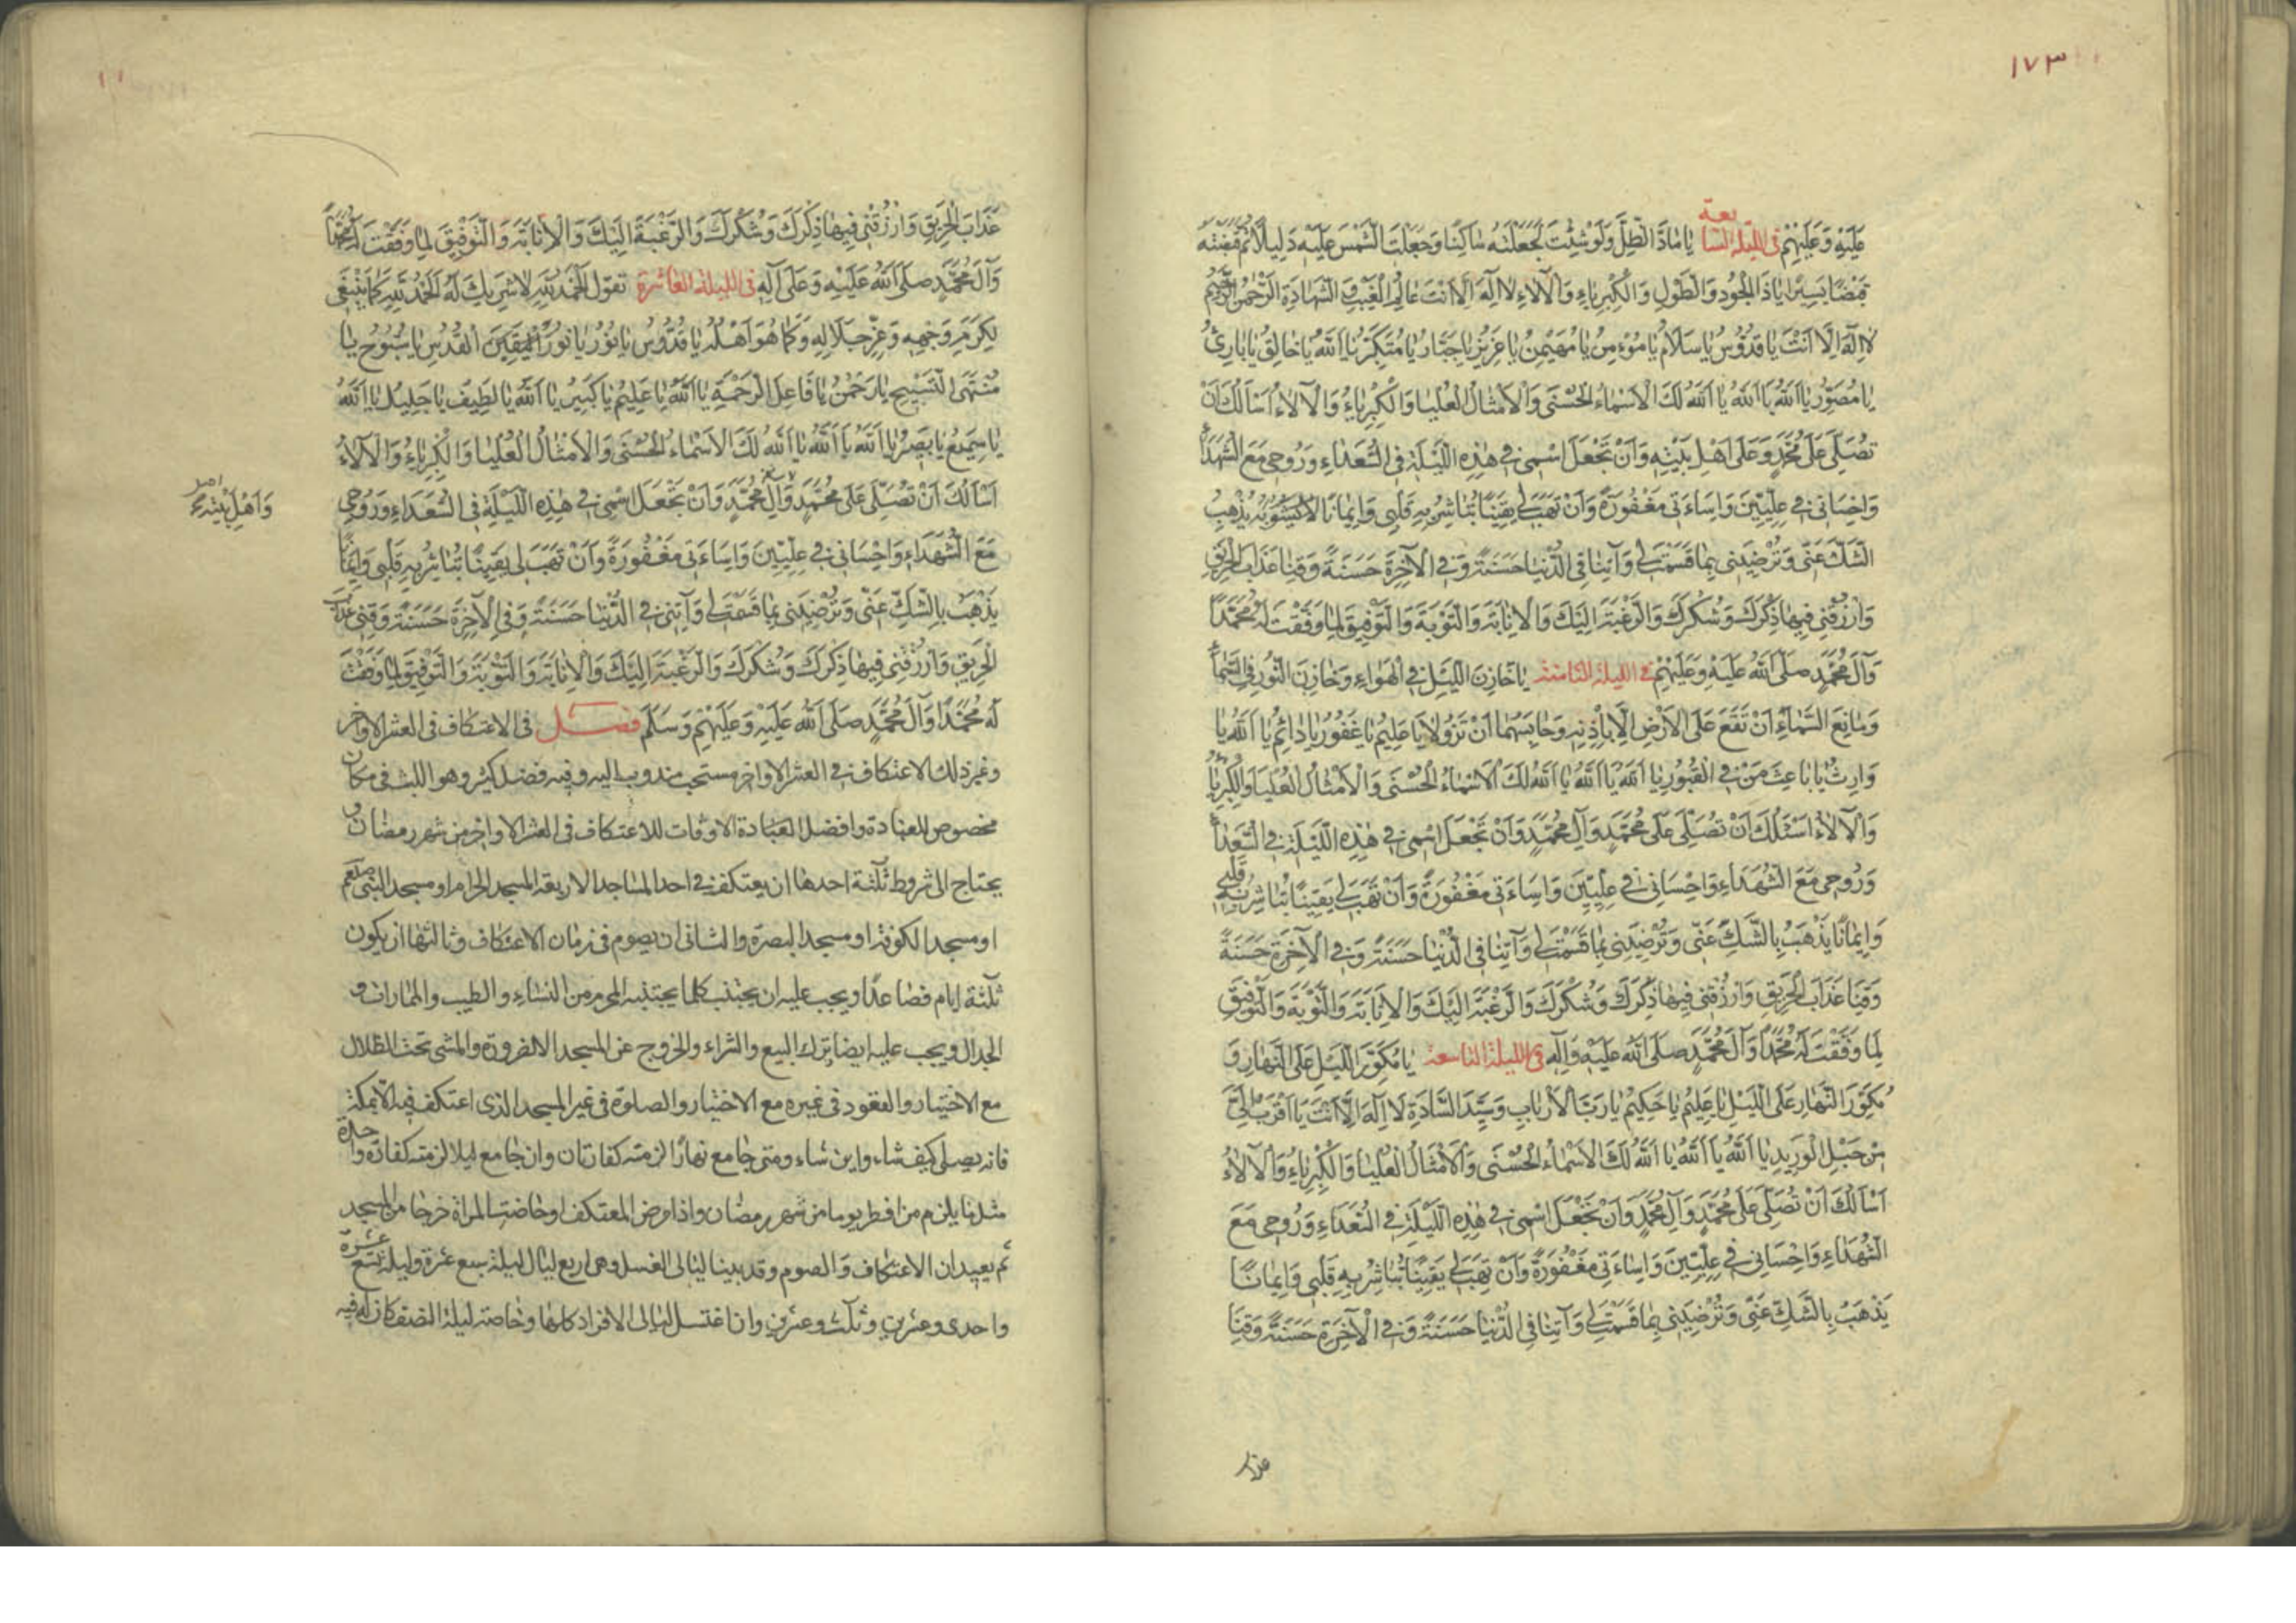 ١٧٣
عَلَيْهِ وَعَلَيْهِمْ في الليلة السابعة يَا مَادَّ الظِّلِّ وَلَوْ شِئْتَ لَجَعَلْتَهُ سَاكِنًا وَجَعَلْتَ الشَّمْسَ عَلَيْهِ دَلِيلًا ثُمَّ قَبَضْتَهُ
قَبْضًا يَسِيرًا يَا ذَا الْجُودِ وَالطَّوْلِ وَالْكِبْرِيَاءِ وَالْآلَاءِ لَا اِلٰهَ اِلَّا اَنْتَ عَالِمُ الْغَيْبِ وَالشَّهَادَةِ الرَّحْمٰنُ الرَّحِيمُ
لَا اِلٰهَ اِلَّا اَنْتَ يَا قُدُّوسُ يَا سَلَامُ يَا مُؤْمِنُ يَا مُهَيْمِنُ يَا عَزِيزُ يَا جَبَّارُ يَا مُتَكَبِّرُ يَا اَللّٰهُ يَا خَالِقُ يَا بَارِئُ
يَا مُصَوِّرُ يَا اَللّٰهُ يَا اَللّٰهُ يَا اَللّٰهُ لَكَ الْاَسْمَاءُ الْحُسْنَى وَالْاَمْثَالُ الْعُلْيَا وَالْكِبْرِيَاءُ وَالْآلَاءُ اَسْاَلُكَ اَنْ
تُصَلِّيَ عَلَى مُحَمَّدٍ وَعَلَى اَهْلِ بَيْتِهِ وَاَنْ تَجْعَلَ اسْمِي فِي هٰذِهِ اللَّيْلَةِ فِي السُّعَدَاءِ وَرُوحِي مَعَ الشُّهَدَاءِ
وَاِحْسَانِي فِي عِلِّيِّينَ وَاِسَاءَتِي مَغْفُورَةً وَاَنْ تَهَبَ لِي يَقِينًا تُبَاشِرُ بِهِ قَلْبِي وَاِيمَانًا لَا يَشُوبُهُ يُذْهِبُ
الشَّكَّ عَنِّي وَتُرْضِيَنِي بِمَا قَسَمْتَ لِي وَآتِنَا فِي الدُّنْيَا حَسَنَةً وَفِي الْآخِرَةِ حَسَنَةً وَقِنَا عَذَابَ الْحَرِيقِ
وَارْزُقْنِي فِيهَا ذِكْرَكَ وَشُكْرَكَ وَالرَّغْبَةَ اِلَيْكَ وَالْاِنَابَةَ وَالتَّوْبَةَ وَالتَّوْفِيقَ لِمَا وَفَّقْتَ لَهُ مُحَمَّدًا
وَآلَ مُحَمَّدٍ صَلَّى اللّٰهُ عَلَيْهِ وَعَلَيْهِمْ في الليلة الثامنة يَا خَازِنَ اللَّيْلِ فِي الْهَوَاءِ وَخَازِنَ النُّورِ فِي السَّمَاءِ
وَمَانِعَ السَّمَاءِ اَنْ تَقَعَ عَلَى الْاَرْضِ اِلَّا بِاِذْنِهِ وَحَابِسَهُمَا اَنْ تَزُولَا يَا عَلِيمُ يَا غَفُورُ يَا دَائِمُ يَا اَللّٰهُ يَا
وَارِثُ يَا بَاعِثَ مَنْ فِي الْقُبُورِ يَا اَللّٰهُ يَا اَللّٰهُ يَا اَللّٰهُ لَكَ الْاَسْمَاءُ الْحُسْنَى وَالْاَمْثَالُ الْعُلْيَا وَالْكِبْرِيَاءُ
وَالْآلَاءُ اَسْئَلُكَ اَنْ تُصَلِّيَ عَلَى مُحَمَّدٍ وَآلِ مُحَمَّدٍ وَاَنْ تَجْعَلَ اسْمِي فِي هٰذِهِ اللَّيْلَةِ فِي السُّعَدَاءِ
وَرُوحِي مَعَ الشُّهَدَاءِ وَاِحْسَانِي فِي عِلِّيِّينَ وَاِسَاءَتِي مَغْفُورَةً وَاَنْ تَهَبَ لِي يَقِينًا تُبَاشِرُ بِهِ قَلْبِي
وَاِيمَانًا يَذْهَبُ بِالشَّكِّ عَنِّي وَتُرْضِيَنِي بِمَا قَسَمْتَ لِي وَآتِنَا فِي الدُّنْيَا حَسَنَةً وَفِي الْآخِرَةِ حَسَنَةً
وَقِنَا عَذَابَ الْحَرِيقِ وَارْزُقْنِي فِيهَا ذِكْرَكَ وَشُكْرَكَ وَالرَّغْبَةَ اِلَيْكَ وَالْاِنَابَةَ وَالتَّوْبَةَ وَالتَّوْفِيقَ
لِمَا وَفَّقْتَ لَهُ مُحَمَّدًا وَآلَ مُحَمَّدٍ صَلَّى اللّٰهُ عَلَيْهِ وَآلِهِ في الليلة التاسعة يَا مُكَوِّرَ اللَّيْلِ عَلَى النَّهَارِ وَ
مُكَوِّرَ النَّهَارِ عَلَى اللَّيْلِ يَا عَلِيمُ يَا حَكِيمُ يَا رَبَّ الْاَرْبَابِ وَسَيِّدَ السَّادَةِ لَا اِلٰهَ اِلَّا اَنْتَ يَا اَقْرَبَ اِلَيَّ
مِنْ حَبْلِ الْوَرِيدِ يَا اَللّٰهُ يَا اَللّٰهُ يَا اَللّٰهُ لَكَ الْاَسْمَاءُ الْحُسْنَى وَالْاَمْثَالُ الْعُلْيَا وَالْكِبْرِيَاءُ وَالْآلَاءُ
اَسْاَلُكَ اَنْ تُصَلِّيَ عَلَى مُحَمَّدٍ وَآلِ مُحَمَّدٍ وَاَنْ تَجْعَلَ اسْمِي فِي هٰذِهِ اللَّيْلَةِ فِي السُّعَدَاءِ وَرُوحِي مَعَ
الشُّهَدَاءِ وَاِحْسَانِي فِي عِلِّيِّينَ وَاِسَاءَتِي مَغْفُورَةً وَاَنْ تَهَبَ لِي يَقِينًا تُبَاشِرُ بِهِ قَلْبِي وَاِيمَانًا
يَذْهَبُ بِالشَّكِّ عَنِّي وَتُرْضِيَنِي بِمَا قَسَمْتَ لِي وَآتِنَا فِي الدُّنْيَا حَسَنَةً وَفِي الْآخِرَةِ حَسَنَةً وَقِنَا
عذاب
عَذَابَ الْحَرِيقِ وَارْزُقْنِي فِيهَا ذِكْرَكَ وَشُكْرَكَ وَالرَّغْبَةَ اِلَيْكَ وَالْاِنَابَةَ وَالتَّوْفِيقَ لِمَا وَفَّقْتَ لَهُ مُحَمَّدًا
وَآلَ مُحَمَّدٍ صَلَّى اللّٰهُ عَلَيْهِ وَعَلَى آلِهِ في الليلة العاشرة تقول اَلْحَمْدُ لِلّٰهِ لَا شَرِيكَ لَهُ اَلْحَمْدُ لِلّٰهِ كَمَا يَنْبَغِي
لِكَرَمِ وَجْهِهِ وَعِزِّ جَلَالِهِ وَكَمَا هُوَ اَهْلُهُ يَا قُدُّوسُ يَا نُورُ يَا نُورَ الْقُدُسِ يَا سُبُّوحُ يَا
مُنْتَهَى التَّسْبِيحِ يَا رَحْمٰنُ يَا فَاعِلَ الرَّحْمَةِ يَا اَللّٰهُ يَا عَلِيمُ يَا كَبِيرُ يَا اَللّٰهُ يَا لَطِيفُ يَا جَلِيلُ يَا اَللّٰهُ
يَا سَمِيعُ يَا بَصِيرُ يَا اَللّٰهُ يَا اَللّٰهُ يَا اَللّٰهُ لَكَ الْاَسْمَاءُ الْحُسْنَى وَالْاَمْثَالُ الْعُلْيَا وَالْكِبْرِيَاءُ وَالْآلَاءُ
اَسْاَلُكَ اَنْ تُصَلِّيَ عَلَى مُحَمَّدٍ وَآلِ مُحَمَّدٍ وَاَنْ تَجْعَلَ اسْمِي فِي هٰذِهِ اللَّيْلَةِ فِي السُّعَدَاءِ وَرُوحِي
وَاَهْلِ بَيْتِهِ
مَعَ الشُّهَدَاءِ وَاِحْسَانِي فِي عِلِّيِّينَ وَاِسَاءَتِي مَغْفُورَةً وَاَنْ تَهَبَ لِي يَقِينًا تُبَاشِرُ بِهِ قَلْبِي وَاِيمَانًا
يَذْهَبُ بِالشَّكِّ عَنِّي وَتُرْضِيَنِي بِمَا قَسَمْتَ لِي وَآتِنِي فِي الدُّنْيَا حَسَنَةً وَفِي الْآخِرَةِ حَسَنَةً وَقِنِي عَذَابَ
الْحَرِيقِ وَارْزُقْنِي فِيهَا ذِكْرَكَ وَشُكْرَكَ وَالرَّغْبَةَ اِلَيْكَ وَالْاِنَابَةَ وَالتَّوْبَةَ وَالتَّوْفِيقَ لِمَا وَفَّقْتَ
لَهُ مُحَمَّدًا وَآلَ مُحَمَّدٍ صَلَّى اللّٰهُ عَلَيْهِ وَعَلَيْهِمْ وَسَلَّمَ فصل في الاعتكاف في العشر الاواخر
وغير ذلك الاعتكاف في العشر الاواخر مستحب مندوب اليه وفيه فضل كثير وهو اللبث في مكان
مخصوص للعبادة وافضل العبادة الاوقات للاعتكاف في العشر الاواخر من شهر رمضان و
يحتاج الى شروط ثلثة احدها ان يعتكف في احد المساجد الاربعة المسجد الحرام او مسجد النبي صلعم
او مسجد الكوفة او مسجد البصرة والثاني ان يصوم في زمان الاعتكاف وثالثها ان يكون
ثلثة ايام فصاعدًا ويجب عليه ان يجتنب كلما يجتنبه المحرم من النساء والطيب والمماراة و
الجدال ويجب عليه ايضا ترك البيع والشراء والخروج عن المسجد الا لضرورة والمشي تحت الظلال
مع الاختيار والقعود في غيره مع الاختيار والصلوة في غير المسجد الذي اعتكف فيه الا بمكة
فانه يصلي كيف شاء واين شاء ومتى جامع نهارًا لزمته كفارتان وان جامع ليلا لزمته كفارة واحدة
مثل ما يلزم من افطر يوما من شهر رمضان واذا مرض المعتكف او خاضت المراة خرجا من المسجد
ثم يعيدان الاعتكاف والصوم وقد بينا ليالي الغسل وهي اربع ليال ليلة سبع عشرة وليلة تسع عشرة
واحدى وعشرين وثلث وعشرين وان اغتسل ليالي الافراد كلها وخاصة ليلة النصف كان له فيه